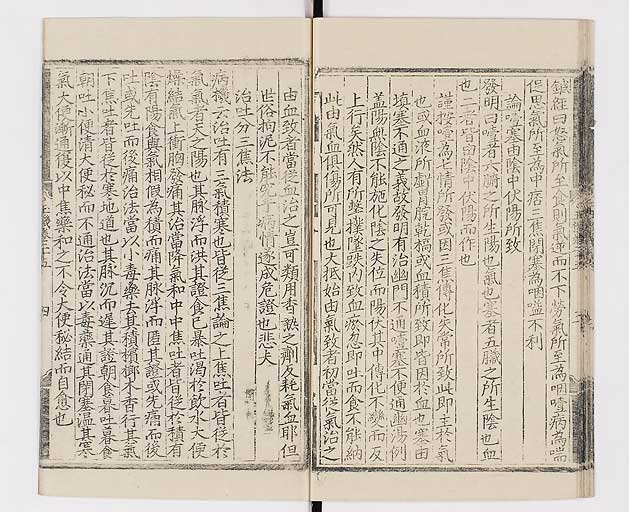 鍼經曰怒氣所至食則氣逆而不下勞氣所至為咽噎病為喘
促思氣所至為中痞三焦閉塞為咽嗌不利
論噎塞由陰中伏陽所致
發明曰噎者六腑之所生陽也氣也塞者五臟之所生陰也血
也二者皆由陰中伏陽而作也
謹按噎為七情所發或因三焦傳化失常所致此即主於氣
也或血液所虧胃脘乾槁或血積所致即皆因於血也塞由
填塞不通之義故發明有治幽門不通噎塞不便通幽湯例
蓋陽無陰不能施化陰之失位而陽伏其中傳化不變而反
上行矣然人有所墜撲墮跌內致血瘀忽即吐而食不能納
此由氣血俱傷所可見也大抵始由氣致者初當從氣治之
由血致者當從血治之豈可類用香燥之劑反耗氣血耶但
世俗拘泥不能究乎病情遂成危證也悲夫
治吐分三焦法
病機云治吐有三氣積寒也皆從三焦論之上焦吐者皆從於
氣氣者天之陽也其脉浮而洪其證食已暴吐渴於飲水大便
燥結氣上衝胸發痛其治當降氣和中中焦吐者皆從於積有
陰有陽食與氣相假為積而痛其脉浮而匿其證或先痛而後
吐或先吐而後痛治法當以小毒藥去其積檳榔木香行其氣
下焦吐者皆從於寒地道也其脉沉而遲其證朝食暮吐暮食
朝吐小便清大便秘而不通治法當以毒藥通其閉塞溫其寒
氣大便漸通復以中焦藥和之不令大便秘結而自愈也
四